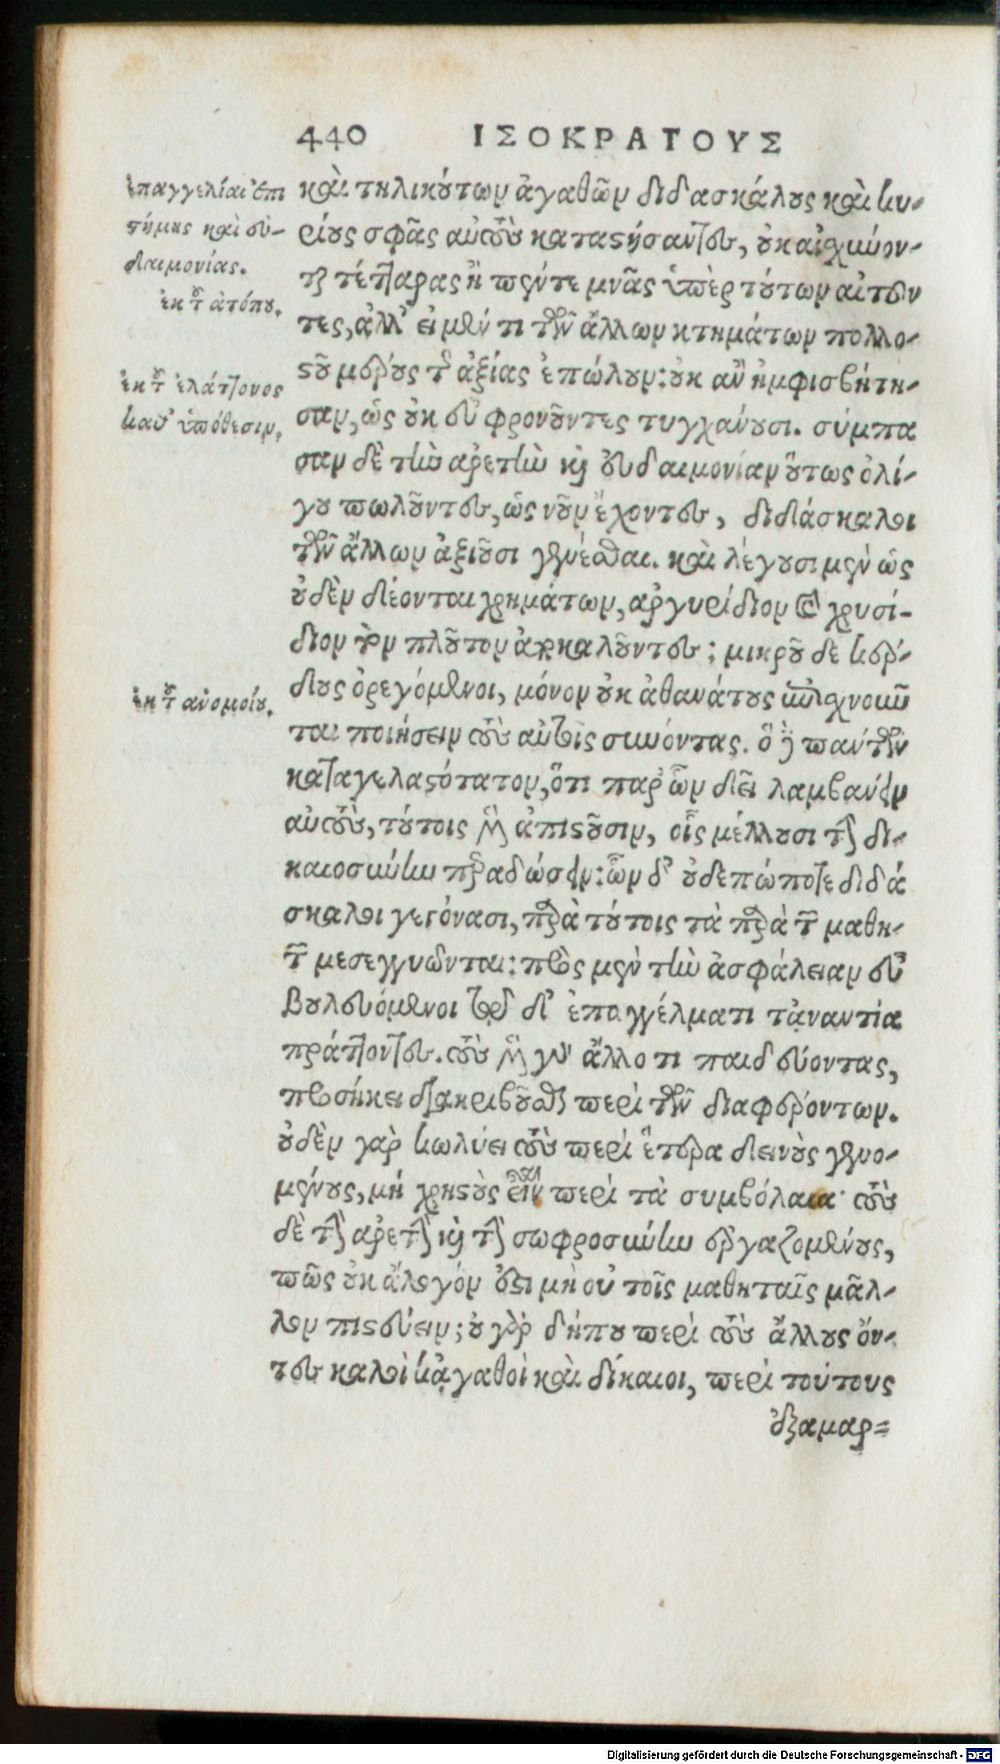 440 ΙΣΟΚΡΑΤΟΥΣ
ἐπαγγελίαι ἐπι
στήμης καὶ εὐ-
δαιμονίας.
ἐκ τοῦ ἀτόπου.
ἐκ τοῦ ἐλάττονος
καθ' ὑπόθεσιν.
ἐκ τοῦ ἀνομοίου.
καὶ τηλικούτων ἀγαθῶν διδασκάλους καὶ κυ-
ρίους σφᾶς αὐτοὺς καταστήσαντες, οὐκ αἰσχύνον-
ται τέτταρας ἢ πέντε μνᾶς ὑπὲρ τούτων αἰτοῦν
τες, ἀλλ' εἰ μέν τι τῶν ἄλλων κτημάτων πολλο-
στοῦ μέρους τῆς ἀξίας ἐπώλουν: οὐκ ἂν ἠμφισβήτη-
σαν, ὡς οὐκ εὖ φρονοῦντες τυγχάνουσι. σύμπα
σαν δὲ τὴν ἀρετὴν καὶ εὐδαιμονίαν οὕτως ὀλί-
γου πωλοῦντες, ὡς νοῦν ἔχοντες, διδάσκαλοι
τῶν ἄλλων ἀξιοῦσι γενέσθαι. καὶ λέγουσι μὲν ὡς
οὐδὲν δέονται χρημάτων, ἀργυρίδιον καὶ χρυσί-
διον τὸν πλοῦτον ἀποκαλοῦντες; μικροῦ δὲ κέρ-
δους ὀρεγόμενοι, μόνον οὐκ ἀθανάτους ὑπισχνοῦν
ται ποιήσειν τοὺς αὐτοῖς συνόντας. ὃ δὲ πάντων
καταγελαστότατον, ὅτι παρ' ὧν δεῖ λαμβάνειν
αὐτοὺς, τούτοις μὲν ἀπιστοῦσιν, οἷς μέλλουσι τὴν δι-
καιοσύνην παραδώσειν: ὧν δ' οὐδεπώποτε διδά
σκαλοι γεγόνασι, παρὰ τούτοις τὰ παρὰ τῶν μαθη-
τῶν μεσεγγυῶνται: πρὸς μὲν τὴν ἀσφάλειαν εὖ
βουλευόμενοι τῷ δ' ἐπαγγέλματι τἀναντία
πράττοντες. τοὺς μὲν γὰρ ἄλλο τι παιδεύοντας,
προσήκει διακριβοῦσθαι περὶ τῶν διαφερόντων.
οὐδὲν γὰρ κωλύει τοὺς περὶ ἕτερα δεινοὺς γενο-
μένους, μὴ χρηστοὺς εἶναι περὶ τὰ συμβόλαια· τοὺς
δὲ τὴν ἀρετὴν καὶ τὴν σωφροσύνην ἐργαζομένους,
πῶς οὐκ ἄλογόν ἐστι μὴ οὐ τοῖς μαθηταῖς μᾶλ-
λον πιστεύειν; οὐ γὰρ δήπου περὶ τοὺς ἄλλους ὄν-
τες καλοὶ κἀγαθοὶ καὶ δίκαιοι, περὶ τούτους
ἐξαμαρ=
Digitalisierung gefördert durch die Deutsche Forschungsgemeinschaft - DFG